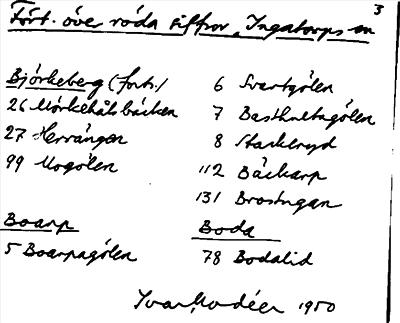 3
Fört. över röda siffror, Ingatorps sn
Björkeberg (forts.)
26 Mörkehålsbäcken
27 Herrängen
99 Mogölen
6 Svartgölen
7 Basthultagölen
8 Stackeryd
112 Bäckarp
131 Brostugan
Boarp
5 Boarpagölen
Boda
78 Bodalid
Ivar Modéer 1950